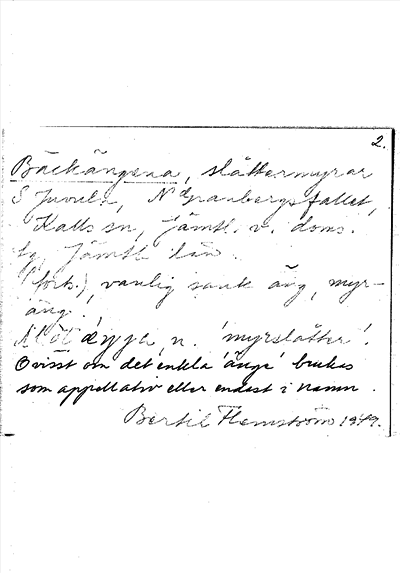 2.
Bäckängena, slåttermyrar
S Juveln, N Granbergsfallet,
Kalls sn, Jämtl. v. doms.
Jämtl. län.
(fork.) vanlig sank äng, myr-
äng.
n. 'myrslåtter'.
Ovisst om det enkla 'änge' brukas
som appellativ eller endast i namn.
Bertil Flemström 1979.